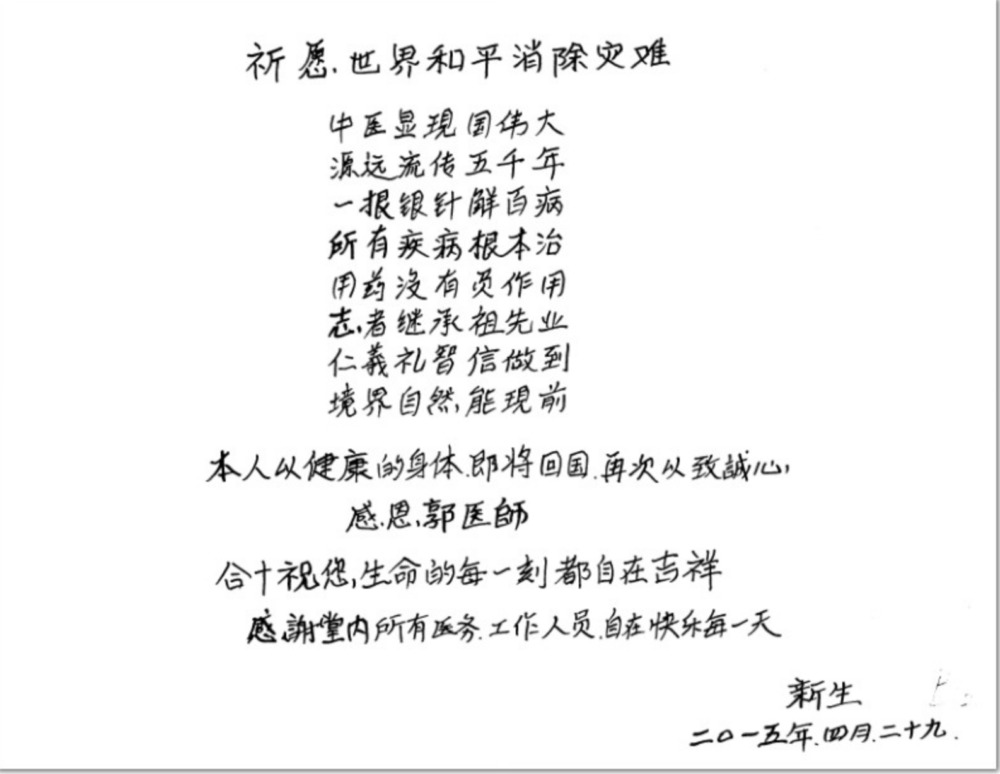 祈愿.世界和平消除灾难
中医显現国伟大
源远流传五千年
一根银针解百病
所有疾病根本治
用药没有负作用
志者继承祖先业
仁義礼智信做到
境界自然能現前
本人以健康的身体.即将回国.再次以致誠心,
感恩,郭医師
合十祝您,生命的每一刻都自在吉祥
感謝堂内所有医务.工作人员.自在快乐每一天
新生
二〇一五年.四月.二十九.